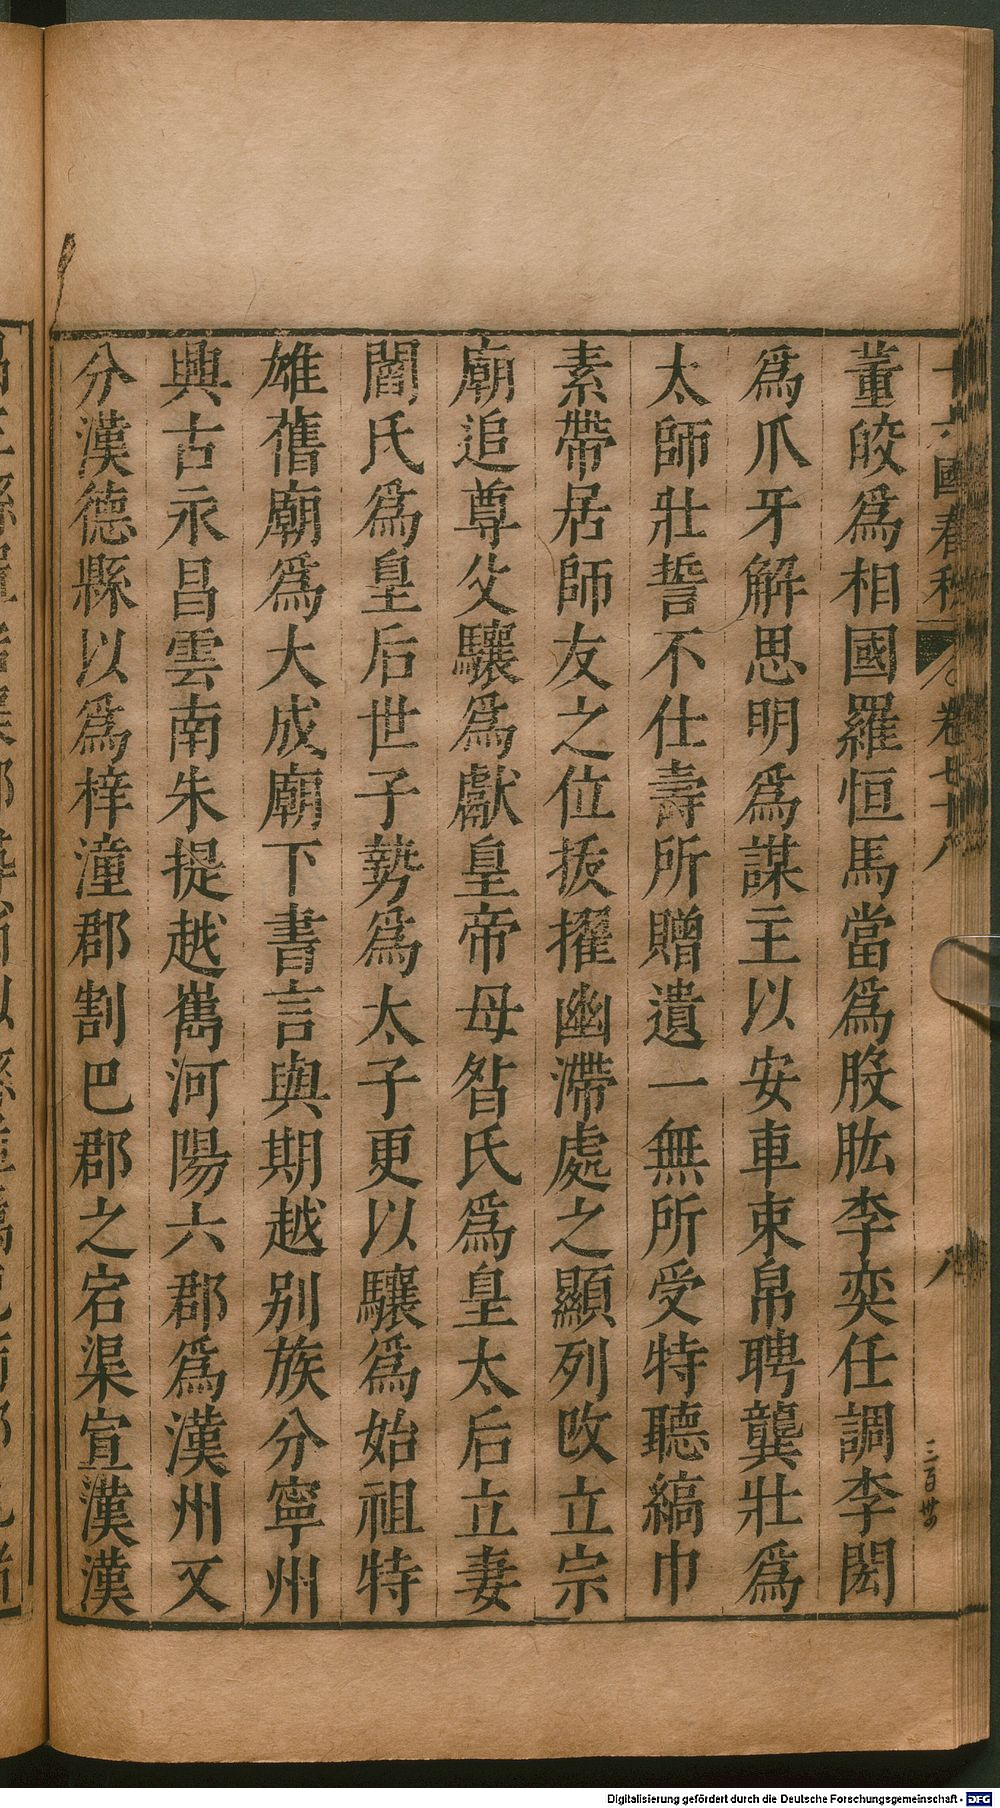 十六國春秋 卷七十八 八 三百卅
董皎爲相國羅恒馬當爲股肱李奕任調李閎
爲爪牙解思明爲謀主以安車束帛聘龔壯爲
太師壯誓不仕壽所贈遺一無所受特聽縞巾
素帶居師友之位拔擢幽滯處之顯列改立宗
廟追尊父驤爲獻皇帝母昝氏爲皇太后立妻
閻氏爲皇后世子勢爲太子更以驤爲始祖特
雄舊廟爲大成廟下書言與期越别族分寧州
興古永昌雲南朱提越嶲河陽六郡爲漢州又
分漢德縣以爲梓潼郡割巴郡之宕渠宣漢漢
Digitalisierung gefördert durch die Deutsche Forschungsgemeinschaft - DFG